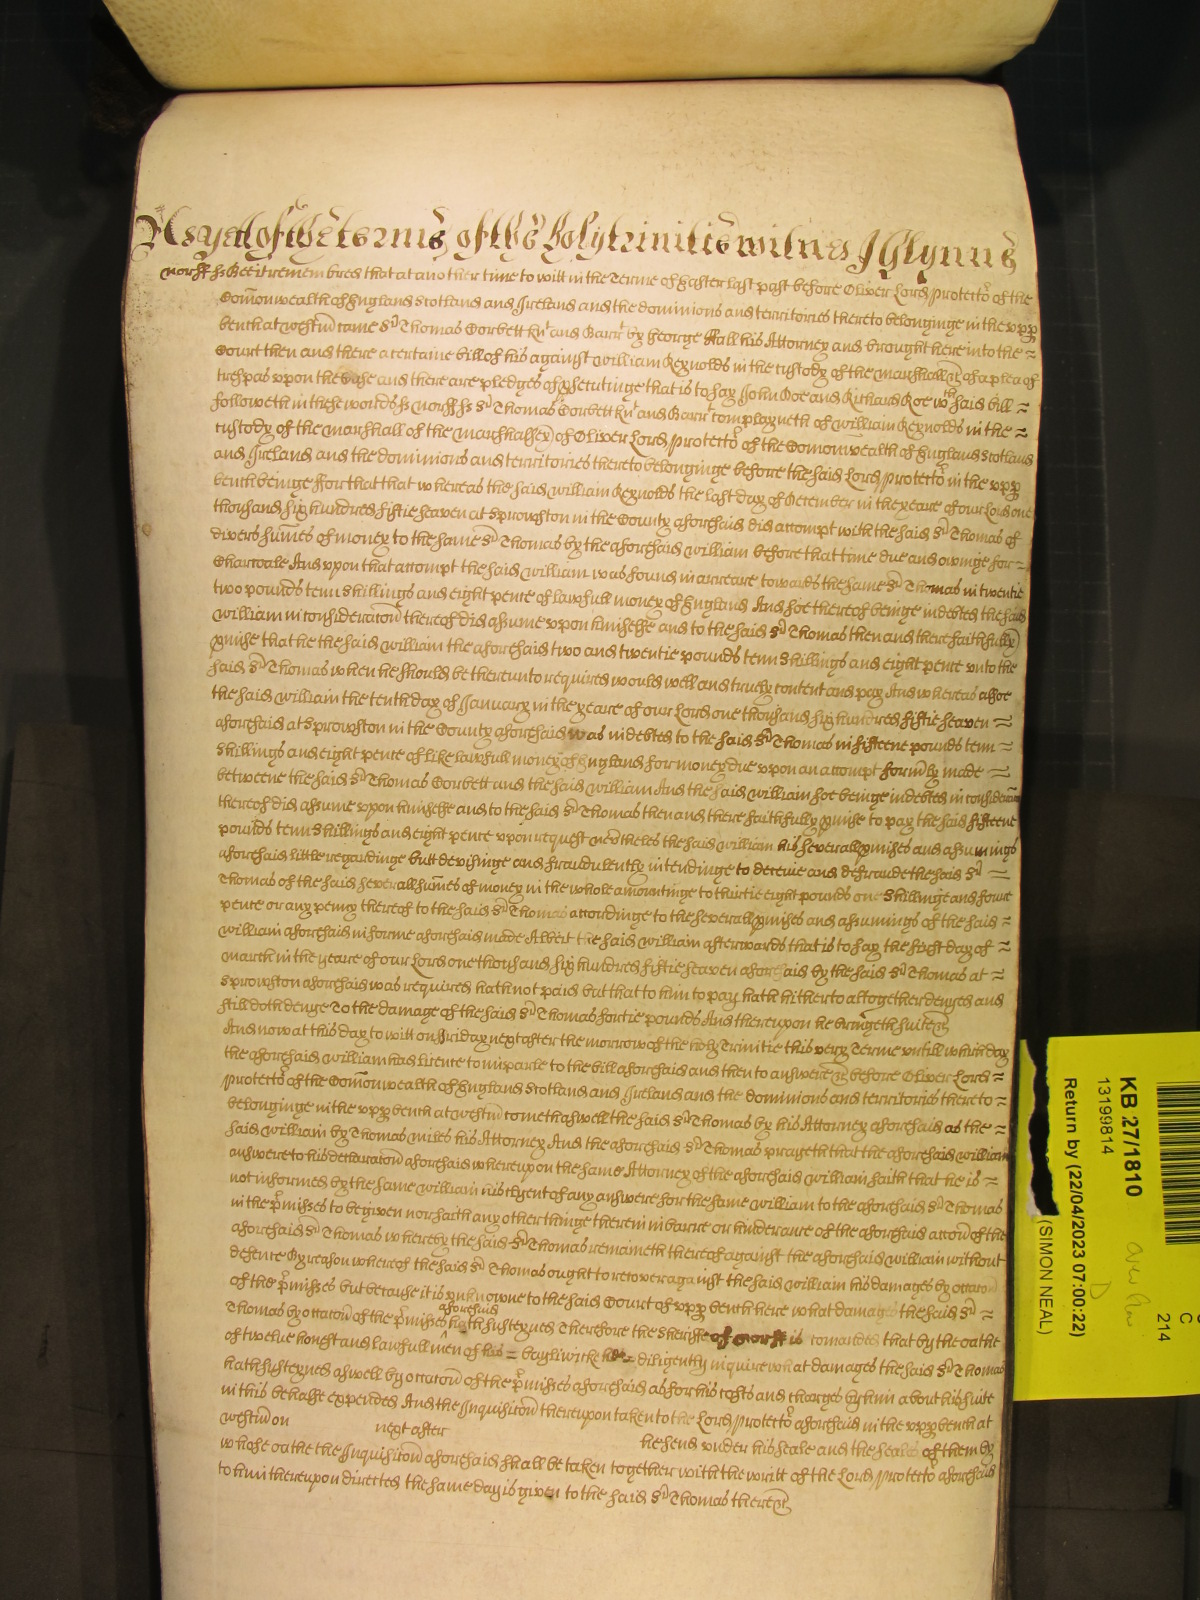 As yett of the terme of the holy trinitie witnes J Glynne
Norff ss Bee it remembred that at another time to witt in the Terme of Easter last past before Oliver Lord Protector of the
Comonwealth of England Scotland and Ireland and the dominions and territories thereto belonginge in the upper
bench at westm came Sr Thomas Corbett Knt and Barrt by George Hall his Attorney and brought here into the =
Court then and there a certaine bill of his against William Reynolds in the custody of the marshall &c of a plea of
trespas upon the Case and there are pledges of prosecutinge that is to say John Doe and Richard Roe wch said bill =
followeth in these words ss Norff ss Sr Thomas Corbett Knt and Barrt complayneth of William Reynolds in the =
custody of the marshall of the marshalsey of Oliver Lord Protector of the Comonwealth of England Scotland
and Ireland and the dominions and territories thereto belonginge before the said Lord Protector in the upper
bench beinge For that that whereas the said William Reynolds the last day of December in the yeare of our Lord one
thousand six hundred fiftie seaven at Sprowston in the County aforesaid did accompt with the said Sr Thomas of
divers sumes of money to the same Sr Thomas by the aforesaid William before that time due and owinge for =
Charcoale And upon that accompt the said William was found in arreare towards the same Sr Thomas in twentie
two pounds tenn shillings and eight pence of lawfull money of England And soe thereof beinge indebted the said
William in consideracon thereof did assume upon himselfe and to the said Sr Thomas then and there faithfully
pmise that he the said William the aforesaid two and twentie pounds tenn shillings and eight pence unto the
said Sr Thomas when he should be thereunto required would well and truely content and pay And whereas alsoe
the said William the tenth day of January in the yeare of our Lord one thousand six hundred fiftie seaven =
aforesaid at Sprowston in the County aforesaid was indebted to the said Sr Thomas in fifteene pounds tenn =
shillings and eight pence of like lawfull money of England for money due upon an accompt formly made =
betweene the said Sr Thomas Corbett and the said William And the said William soe beinge indebted in consideracon
thereof did assume upon himselfe and to the said Sr Thomas then and there faithfully pmise to pay the said fifteene
pounds tenn shillings and eight pence upon request nevtheles the said William his severall pmises and assumings
aforesaid little regardinge butt devisinge and fraudulently intendinge to deceive and defraude the said Sr =
Thomas of the said severall sumes of money in the whole amountinge to thirtie eight pounds one shillinge and foure
pence or any peny thereof to the said Sr Thomas accordinge to the severall pmises and assumings of the said =
William aforesaid in forme aforesaid made Albeit the said William afterwards that is to say the first day of =
march in the yeare of our Lord one thousand six hundred fiftie seaven aforesaid by the said Sr Thomas at =
Sprowston aforesaid was required hath not paid but that to him to pay hath hitherto altogether denyed and
still doth denye To the damage of the said Sr Thomas fortie pounds And thereupon he bringeth suite &c
And now at this day to witt on Friday next after the morrow of the holy Trinitie this very Terme untill which day
the aforesaid William had licence to imparle to the bill aforesaid and then to answere &c before Oliver Lord =
Protector of the Comonwealth of England Scotland and Ireland and the dominions and territories thereto =
belonginge in the upper bench at westm cometh aswell the said Sr Thomas by his Attorney aforesaid as the =
said William by Thomas Miles his Attorney And the aforesaid Sr Thomas prayeth that the aforesaid William
answere to his declaracon aforesaid whereupon the same Attorney of the aforesaid William saith that he is =
not informed by the same William his clyent of any answere for the same William to the aforesaid Sr Thomas
in the pmisses to be given nor saith any other thinge therein in barre or hinderance of the aforesaid accon of the
aforesaid Sr Thomas whereby the said Sr Thomas remaineth thereof against the aforesaid William without
defence By reason whereof the said Sr Thomas ought to recover against the said William his damages by occacon
of the pmisses but because it is unknowne to the said Court of upper bench here what damages the said Sr =
Thomas by occacon of the pmisses aforesaid hath susteyned Therefore the sheriffe of Norff is comanded that by the oathe
of twelve honest and lawfull men of his = bayliwicke hee = diligently inquire what damages the said Sr Thomas
hath susteyned aswell by occacon of the pmisses aforesaid as for his costs and charges by him about his suite
in this behalfe expended And the Inquisicon thereupon taken to the Lord Protector aforesaid in the upper bench at
westm on next after he send under his seale and the seales of them by
whose oathe the Inquisicon aforesaid shall be taken together with the writt of the Lord Protector aforesaid
to him thereupon directed the same day is given to the said Sr Thomas there &c
KB 27/1810
13199814
Return by (22/04/2023 07:00:22)
(SIMON NEAL)
C
214
D